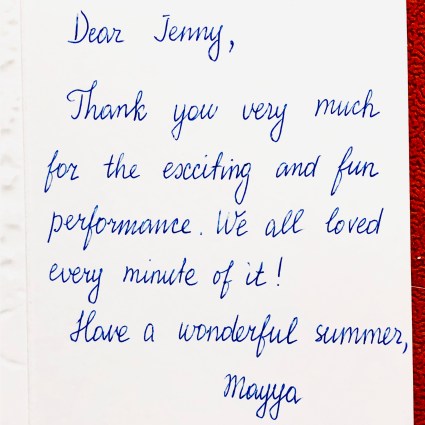 Dear Jenny,
Thank you very much
for the exciting and fun
performance. We all loved
every minute of it!
Have a wonderful summer,
Mayya